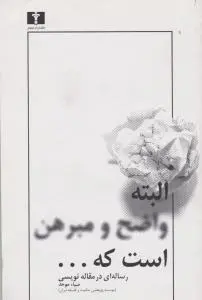 البته
واضح و مبرهن
است که ...
رساله‌ای در مقاله نویسی
ضیاء موحد